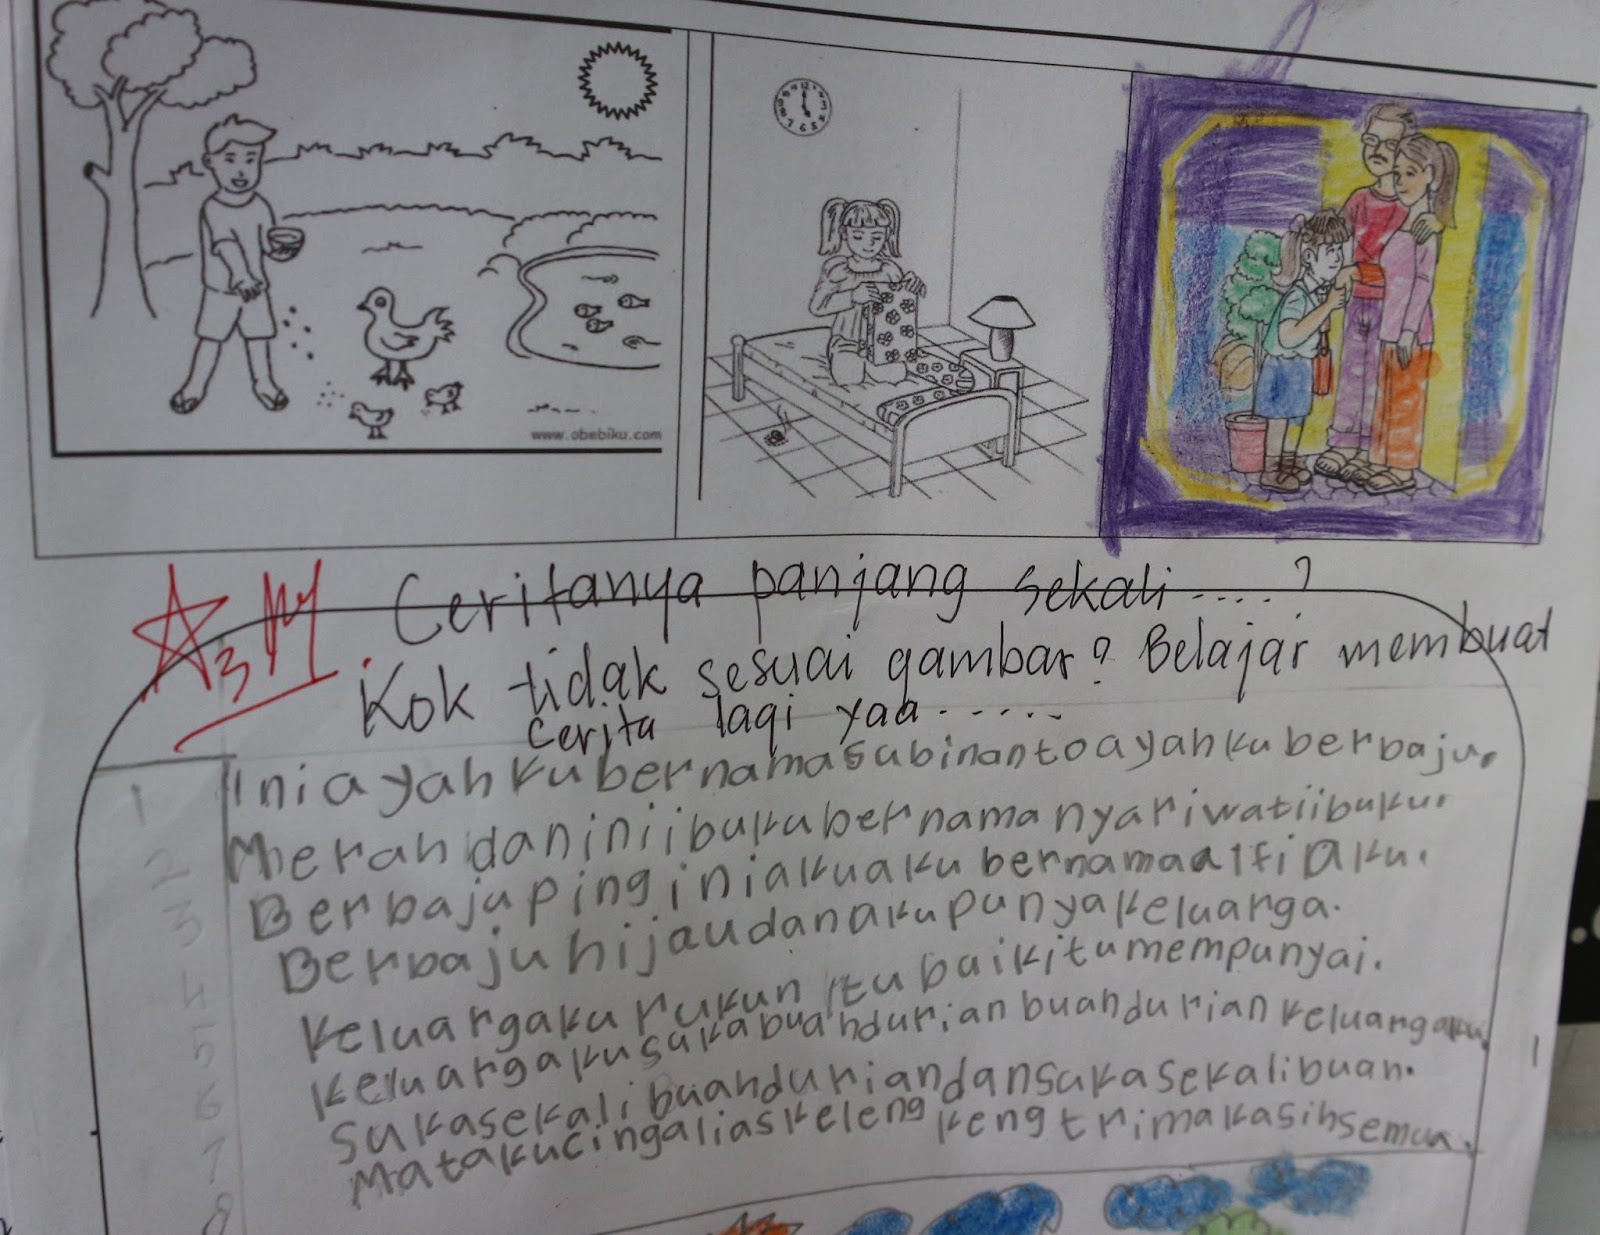 www.obebiku.com
3
Ceritanya panjang sekali ....?
Kok tidak sesuai gambar? Belajar membuat
cerita lagi yaa......
1 Ini ayahku bernama subinanto ayahku berbaju.
2 Merah dan ini ibuku bernamanya riwati ibuku.
3 Berbaju ping ini aku aku bernama alfi aku.
4 Berbaju hijau dan aku punya keluarga.
5 keluargaku rukun itu baik itu mempunyai.
6 keluargaku suka buah durian buah durian keluargaku
7 suka sekali buah durian dan suka sekali buah.
8 Mata kucing alias kelengkeng trimakasih semua.